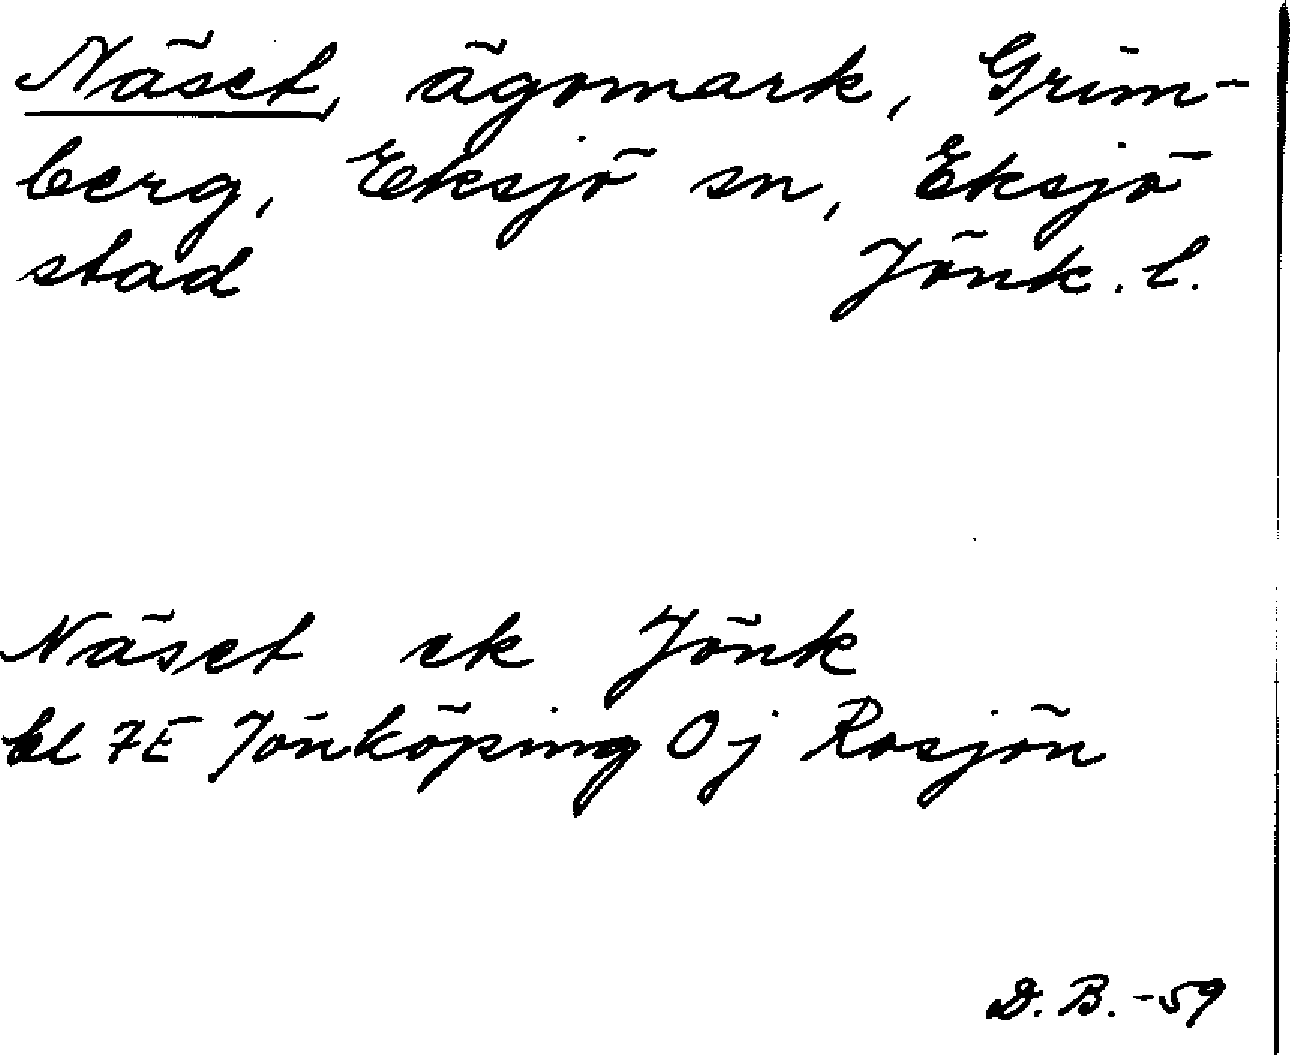 Näset, ägomark, Grim-
berg, Eksjö sn, Eksjö
stad Jönk. l.
Näset ek Jönk
bl 7E Jönköping 0j Rosjön
D. B. -59